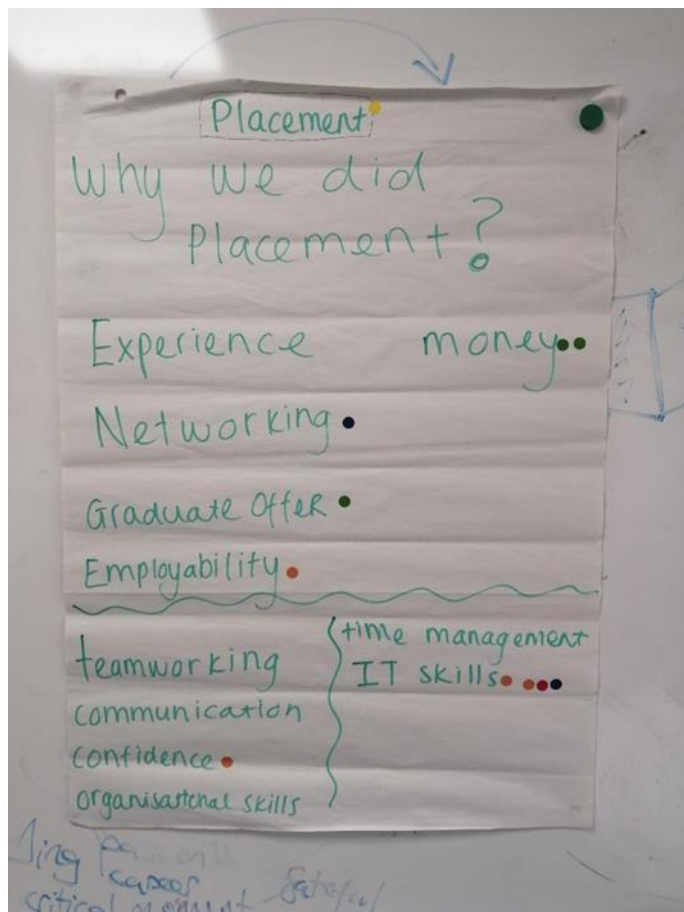 Placement
Why we did
Placement?
Experience money
Networking
Graduate Offer
Employability
teamworking
communication
confidence
organisational skills
time management
IT skills
career
critical moment